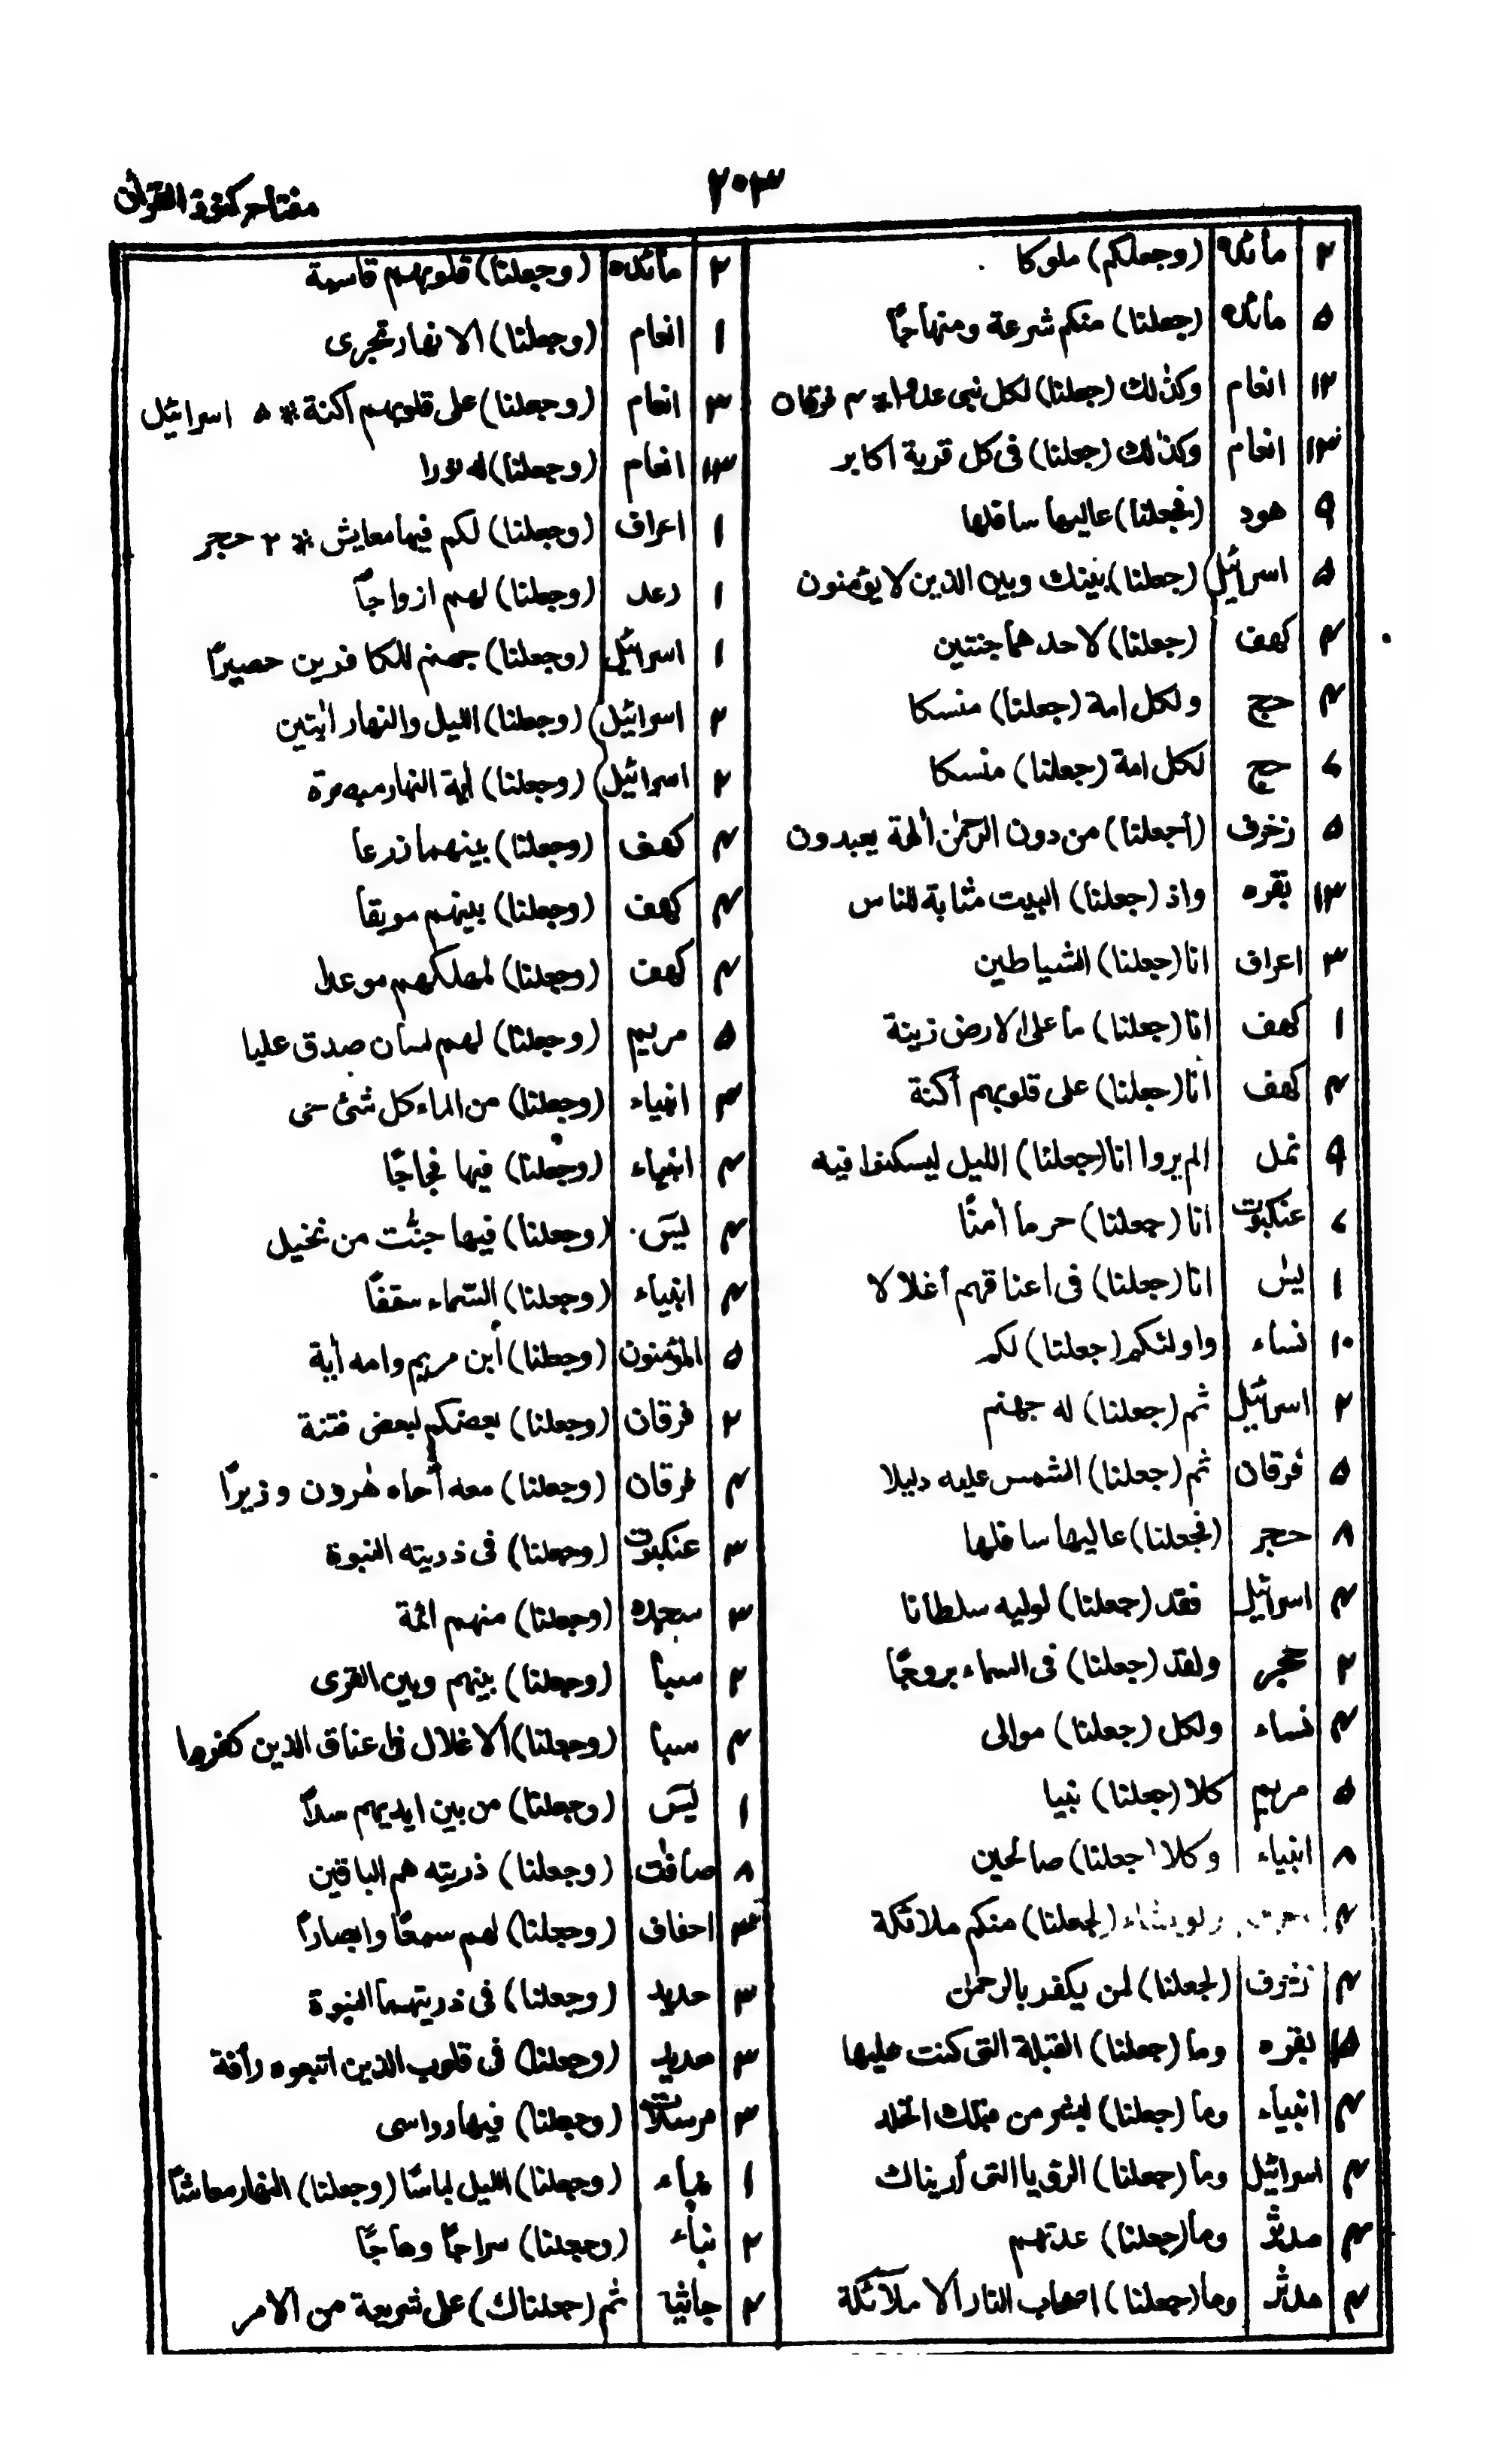 ٢٠٣
مفتاح كنوز القرآن
٢ مائده (وجعلكم) ملوكا
٥ مائده (جعلنا) منكم شرعة ومنهاجًا
١٢ انعام وكذلك (جعلنا) لكل نبى عدوا * ٣ فرقان
١٣ انعام وكذلك (جعلنا) فى كل قرية اكابر
٩ هود (فجعلنا) عاليها سافلها
٥ اسرائيل (جعلنا) بينك وبين الذين لا يؤمنون
٣ كهف (جعلنا) لاحدهما جنتين
٣ حج ولكل امة (جعلنا) منسكا
٤ حج لكل امة (جعلنا) منسكا
٥ زخرف (أجعلنا) من دون الرحمٰن ألهة يعبدون
١٣ بقره واذ (جعلنا) البيت مثابة للناس
٣ اعراف انا (جعلنا) الشياطين
١ كهف انا (جعلنا) ما على الارض زينة
٣ كهف انا (جعلنا) على قلوبهم أكنة
٩ نمل الم يروا انا (جعلنا) الليل ليسكنوا فيه
٤ عنكبوت انا (جعلنا) حرما أمنًا
١ يٰس انا (جعلنا) فى اعناقهم أغلالا
١٠ نساء واولئكم (جعلنا) لكم
٢ اسرائيل ثم (جعلنا) له جهنم
٥ فرقان ثم (جعلنا) الشمس عليه دليلا
٨ حجر (فجعلنا) عاليها سافلها
٣ اسرائيل فقد (جعلنا) لوليه سلطانا
٢ حجر ولقد (جعلنا) فى السماء بروجًا
٣ نساء ولكل (جعلنا) موالى
٥ مريم كلا (جعلنا) نبيا
٨ انبياء وكلا (جعلنا) صالحين
ولو يشاء (لجعلنا) منكم ملائكة
٣ زخرف (لجعلنا) لمن يكفر بالرحمٰن
بقره وما (جعلنا) القبلة التى كنت عليها
٣ انبياء وما (جعلنا) لبشر من قبلك الخلد
٣ اسرائيل وما (جعلنا) الرؤيا التى أريناك
٣ مدثر وما (جعلنا) عدتهم
٣ مدثر وما (جعلنا) اصحاب النار ألا ملآئكة
٢ مائده (وجعلنا) قلوبهم قاسية
١ انعام (وجعلنا) الانهار تجرى
٣ انعام (وجعلنا) على قلوبهم أكنة * ٥ اسرائيل
١٣ انعام (وجعلنا) له نورا
١ اعراف (وجعلنا) لكم فيها معايش * ٢ حجر
١ رعد (وجعلنا) لهم ازواجاً
١ اسرائيل (وجعلنا) جهنم للكافرين حصيرًا
٢ اسرائيل (وجعلنا) الليل والنهار أيتين
٢ اسرائيل (وجعلنا) أية النهار مبصرة
٣ كهف (وجعلنا) بينهما زرعا
٣ كهف (وجعلنا) بينهم موبقا
٣ كهف (وجعلنا) لمهلكهم موعدا
٥ مريم (وجعلنا) لهم لسان صدق عليا
٣ انبياء (وجعلنا) من الماء كل شئ حى
٣ انبياء (وجعلنا) فيها فجاجًا
٣ يٰسٓ (وجعلنا) فيها جنّٰت من نخيل
٣ انبياء (وجعلنا) السّماء سقفًا
٥ المؤمنون (وجعلنا) أبن مريم وامه أية
٢ فرقان (وجعلنا) بعضكم لبعض فتنة
٣ فرقان (وجعلنا) معه أخاه هٰرون وزيرًا
٣ عنكبوت (وجعلنا) فى ذريته النبوة
٣ سجده (وجعلنا) منهم ائمة
٢ سبا (وجعلنا) بينهم وبين القرى
٣ سبا (وجعلنا) ألاغلال فى اعناق الذين كفروا
١ يٰسٓ (وجعلنا) من بين ايديهم سداً
٨ صافٰت (وجعلنا) ذريته هم الباقين
٣ احقاف (وجعلنا) لهم سمعًا وابصاراً
٣ حديد (وجعلنا) فى ذريتهما النبوة
٣ حديد (وجعلنا) فى قلوب الذين اتبعوه رأفة
٣ مرسلات (وجعلنا) فيها رواسى
١ نباء (وجعلنا) الليل لباسًا (وجعلنا) النهار معاشًا
٢ نباء (وجعلنا) سراجًا وهاجًا
٢ جاثية ثم (جعلناك) على شريعة من الامر